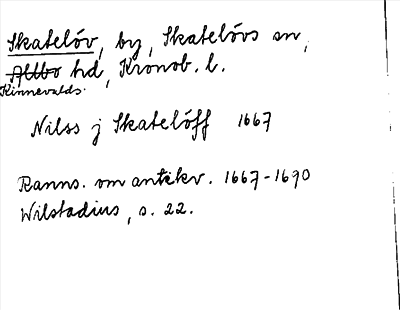 Skatelöv, by, Skatelövs sn,
Allbo hd, Kronob. l.
Kinnevalds.
Nilss j Skatelöff 1667
Ranns. om antikv. 1667-1690
Wilstadius, s. 22.